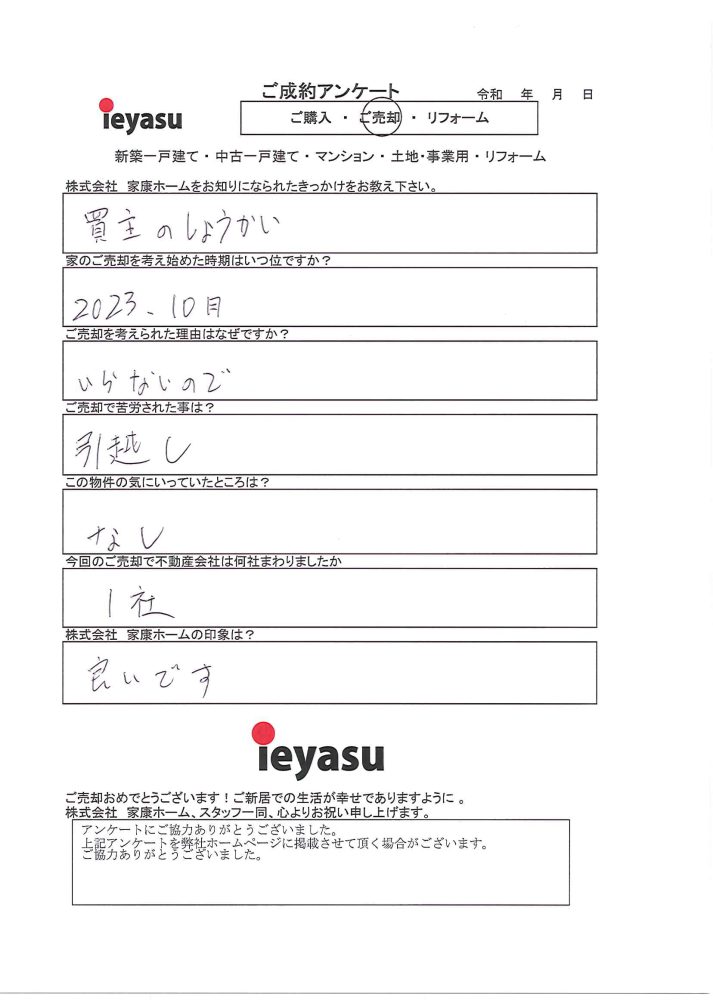 ご成約アンケート
令和 年 月 日
ieyasu
ご購入 ・ ご売却 ・ リフォーム
新築一戸建て・中古一戸建て・マンション・土地・事業用・リフォーム
株式会社 家康ホームをお知りになられたきっかけをお教え下さい。
買主のしょうかい
家のご売却を考え始めた時期はいつ位ですか？
2023、10月
ご売却を考えられた理由はなぜですか？
いらないので
ご売却で苦労された事は？
引越し
この物件の気にいっていたところは？
なし
今回のご売却で不動産会社は何社まわりましたか
1社
株式会社 家康ホームの印象は？
良いです
ieyasu
ご売却おめでとうございます！ご新居での生活が幸せでありますように 。
株式会社 家康ホーム、スタッフ一同、心よりお祝い申し上げます。
アンケートにご協力ありがとうございました。
上記アンケートを弊社ホームページに掲載させて頂く場合がございます。
ご協力ありがとうございました。